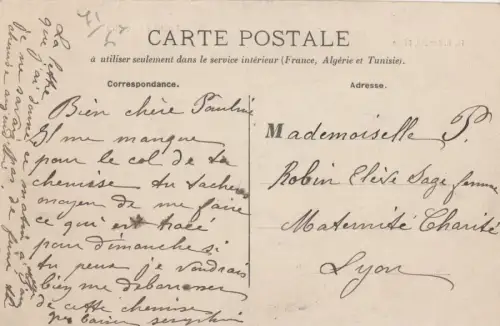 CARTE POSTALE
à utiliser seulement dans le service intérieur (France, Algérie et Tunisie).
Correspondance.
Adresse.
Bien chère Pauline
Il me manque
pour le col de ta
chemisse tu tache
moyen de me faire
ce qui est tracé
pour dimanche si
tu peux je voudrais
bien me débarrasser
de cette chemise
Mademoiselle P.
Robin Elève Sage femme
Maternité Charité
Lyon
La lettre
que j'ai donné ce matin
je ne savais pas